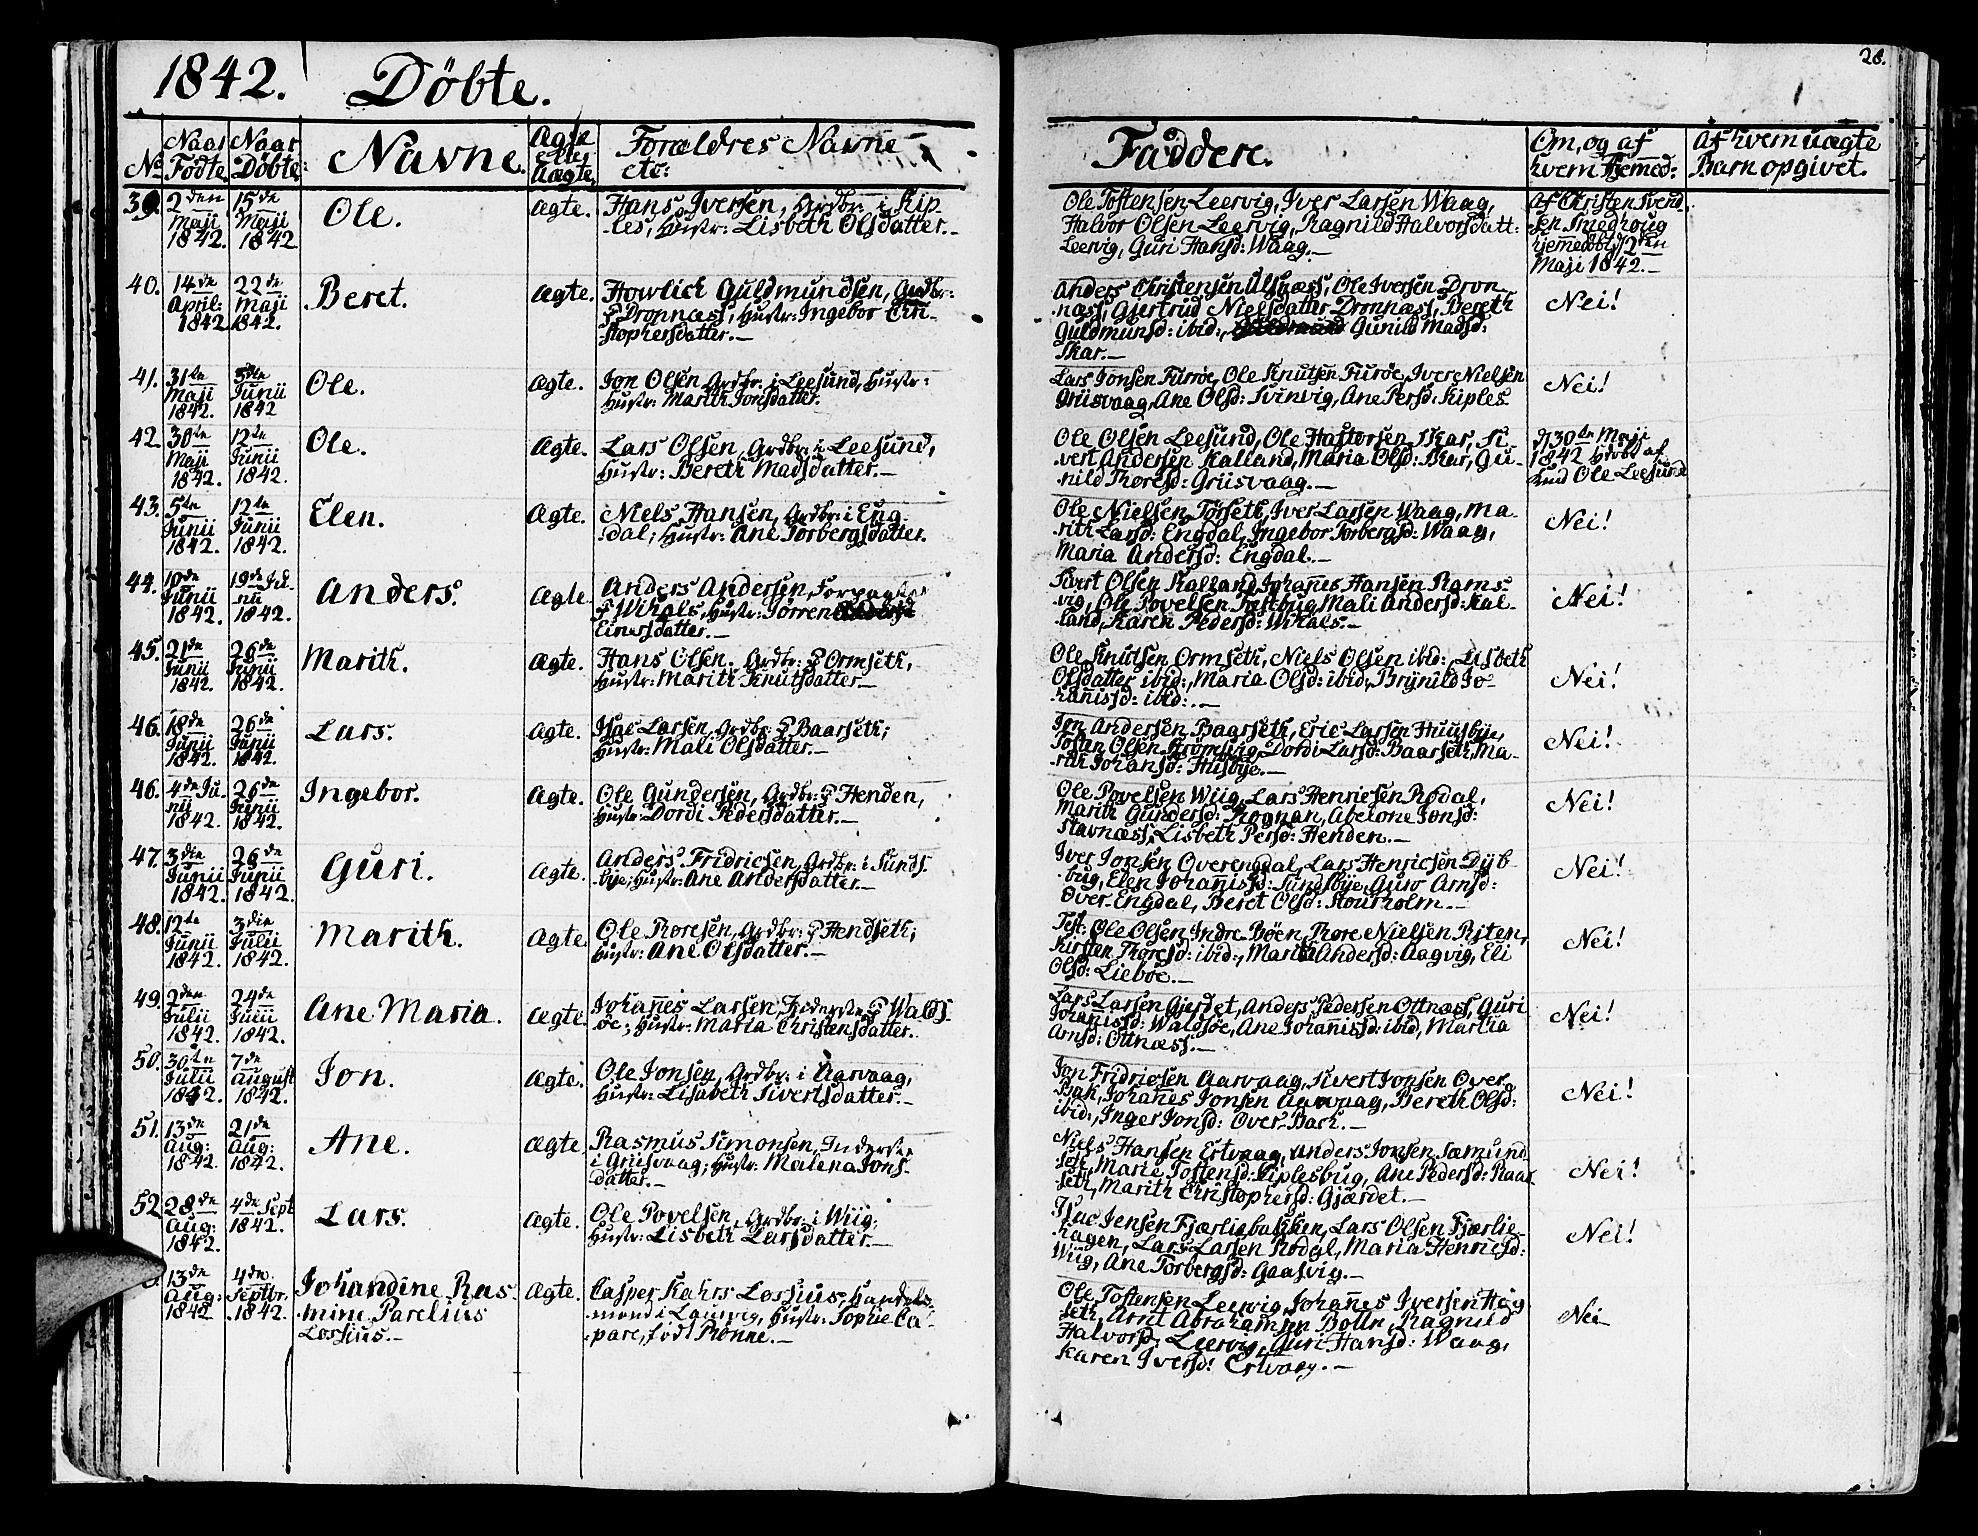 1842. Döbte.
28.
No. Naar Födte. Naar Döbte: Navne. Ægte eller Uægte. Forældres Navne etc:
Faddere. Om, og af hvem hjemed: Af hvem uægte Barn opgivet.
39. 2den Maji 1842. 15de Maji 1842 Ole. Ægte. Hans Iversen, Grdbr: i Kip-
-les, Hustr: Lisbeth Olsdatter.-
Ole Tostensen Leervig, Iver Larsen Waag,
Halvor Olsen Leervig, Ragnild Halvorsdatt:
Leervig, Guri Hansd: Waag.-
Af Christen Svend-
sen Smedhoug
hjemedöbt d 2den
Maji 1842.-
40. 14de April: 1842 22de Maji 1842. Beret. Ægte. Howlich Guldmundsen, Grdbr:
p Dronnæss, Hustr: Ingebor Chri-
stophersdatter.-
Anders Christensen Ulsnæss, Ole Iversen Dron-
næss, Gjertrud Nielsdatter Dronnæss, Bereth
Guldmunsd: ibid:, Gunild Madsd:
Skar.-
Nei!
41. 31te Maji 1842. 5te Junii 1842 Ole. Ægte. Jon Olsen Grdbr: i Leesund, Hustr:
Hustr: Marith Jonsdatter.
Lars Jonsen Furröe, Ole Knutsen Furöe, Iver Nielsen
Griisvaag, Ane Olsd: Svinvig, Ane Persd: Kiples.
Nei!
42. 30te Maji 1842. 12te Junii 1842. Ole. Ægte. Lars Olsen, Grdbr: i Leesund,
Hustr: Bereth Madsdatter.-
Ole Olsen Leesund, Ole Hastorsen Skar, Si-
vert Andersen Kalland, Maria Olsd: Skar, Gu-
nild Thoresd: Griisvaag.-
d 30te Maji
1842 af
Ole Leesund
43. 5te Junii 1842. 12te Junii 1842. Elen. Ægte. Niels Hansen, Grdbr: i Eng-
dal; Hustr: Ane Torbergsdatter.
Ole Nielsen Torseth, Iver Larsen Waag, Ma-
rith Larsd: Engdal, Ingebor Torbergsd: Waag,
Maria Andersd: Engdal.-
Nei!
44. 10de Junii 1842. 19de Ju-
nii 1842. Anders. Ægte. Anders Andersen, Forpagter
p Wihals, Hustr: Torren
Einersdatter.-
Sivert Olsen Kalland, Johañes Hansen Rams-
vig, Ole Povelsen Mali Andersd: Kal-
land, Karen Pedersd: Wihals.-
Nei!
45. 21de Junii 1842. 26de Junii 1842. Marith. Ægte. Hans Olsen. Grdbr: p Ormseth,
Hustr: Marith Knutsdatter.-
Ole Knutsen Ormseth, Niels Olsen ibid:, Lisbeth
Olsdatter ibid:, Maria Olsd: ibid:, Brynild Jo-
hañisd: ibid:.-
Nei!
46. 18de Junii 1842. 26de Junii 1842. Lars. Ægte. Isac Larsen, Grdbr: p Baarseth;
Hustr: Mali Olsdatter.-
Jon Andersen Baarseth, Eric Larsen Huusbye,
Johan Olsen Dordi Larsd: Baarseth, Ma-
rith Johansd: Husbye.-
Nei!
46. 4de Ju-
nii 1842. 26de Junii 1842. Ingebor. Ægte. Ole Gundersen, Grdbr: p Henden,
Hustr: Dordi Pedersdatter.-
Ole Povelsen Wiig, Lars Henricsen Rödal,
Marith Gundersd: Rognan, Abelone Jonsd:
Stavnæss, Lisbeth Persd: Henden.-
Nei!
47. 3die Junii 1842. 26de Junii 1842. Guri. Ægte. Anders Fridricsen, Grdbr: i Sunds-
bye; Hustr: Ane Andersdatter.-
Iver Jonsen Overengdal, Lars Henricsen Dyb-
bug, Elen Johañisd: Sundsbye, Guro Arnsd:
Over-Engdal, Beret Olsd: Stourholm.-
Nei!
48. 12te Junii 1842. 3die Julii 1842. Marith. Ægte. Ole Thoresen, Grdbr: p Hendseth;
Hustr: Ane Olsdatter.-
Test: Ole Olsen Indre-Böen, Thore Nielsen Riten,
Kirsten Thoresd: ibid:, Marith Andersd: Aagvig, Eli
Olsd: Lieböe.-
Nei!
49. 2den Julii 1842. 24de Julii 1842. Ane Maria. Ægte. Johañes Larsen, Inderste p Walds-
öe; Hustr: Maria Christensdatter.
Lars Larsen Gjerdet, Anders Pedersen Ottnæss, Guri
Johañisd: Waldsöe, Ane Johañisd: ibid, Martha
Arnsd: Ottnæss.-
Nei!
50. 30te Julii 1842. 7de August 1842. Jon. Ægte. Ole Jonsen, Grdbr: i Aarvaag,
Hustr: Lisabeth Sivertsdatter.-
Jon Fridricsen Aarvaag, Sivert Jonsen Over-
Bak, Johañes Jonsen Aarvaag, Bereth Olsd:
ibid:, Inger Jonsd: Over-Back.-
Nei!
51. 13de Aug: 1842. 21de Aug: 1842. Ane. Ægte. Rasmus Simonsen, Inderste
i Griisvaag; Hustr: Malena Jons-
datter.-
Niels Hansen Ertvaag, Anders Jonsen
Marie Tostensd: Kiplesbug, Ane Pedersd:
seth, Marith Christophersd: Gjærdet.-
Nei!
52 28de Aug: 1842. 4de Sept 1842. Lars. Ægte. Ole Povelsen, Grdbr: i Wiig;
Hustr: Lisbeth Larsdatter.-
Isac Jensen Fjærliebakken, Lars Olsen Fjærlie-
hagen, Lars Larsen Rodal, Maria Henricsd:
Wiig, Ane Torbergsd: Gaasvig.-
Nei!
13de Aug: 1842 4de Septbr. 1842. Johandine Ras-
mine Parelius
Lossius.- Ægte. Casper Kahrs Lossius, Handels-
mand i Laurvig, Hustr: Sophie Ca-
pare, föd Rönne.-
Ole Tostensen Leervig, Johañes Iversen Hög-
seth, Arnt Abrahamsen Bolln, Ragnild
Halvorsd: Leervig, Guri Hansd: Waag,
Karen Iversd: Ertvaag.-
Nei